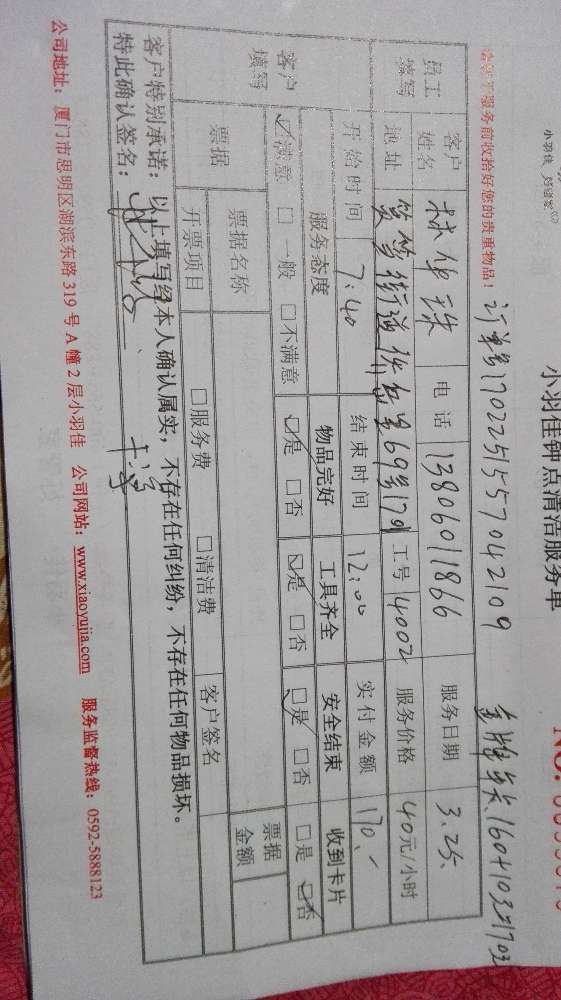 小羽佳钟点清洁服务单
小羽佳 好请家
NO.
订单号1702251557042109
请您于服务前收拾好您的贵重物品!
员工填写 客户姓名 林华珠 电话 13806011866 服务日期 3.25.
地址 筼筜街道 69号1701 工号 4002 服务价格 40元/小时
开始时间 7:40 结束时间 12:00 实付金额 170.
客户填写 服务态度 物品完好 工具齐全 安全结束 收到卡片
☑满意 □一般 □不满意 ☑是 □否 ☑是 □否 ☑是 □否 □是 ☑否
票据 票据名称 票据金额
开票项目 □服务费 □清洁费 客户签名
客户特别承诺:以上填写经本人确认属实,不存在任何纠纷,不存在任何物品损坏。
特此确认签名:
公司地址:厦门市思明区湖滨东路319号A幢2层小羽佳 公司网站:www.xiaoyujia.com 服务监督热线:0592-5888123